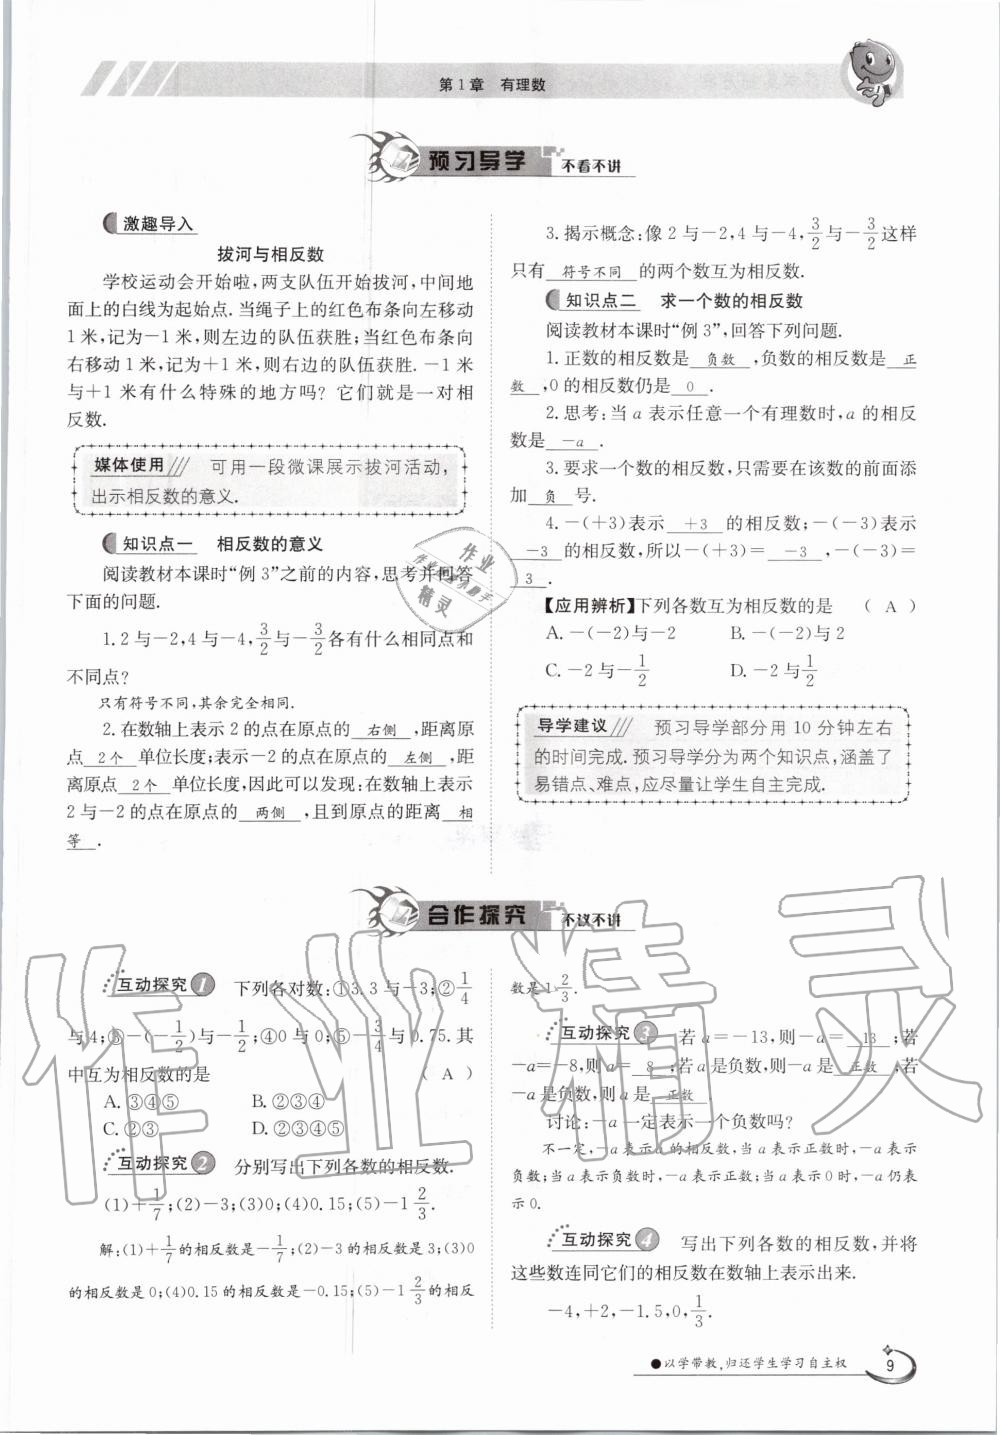 第1章 有理数
预习导学 不看不讲
激趣导入
拔河与相反数
学校运动会开始啦,两支队伍开始拔河,中间地
面上的白线为起始点.当绳子上的红色布条向左移动
1米,记为-1米,则左边的队伍获胜;当红色布条向
右移动1米,记为+1米,则右边的队伍获胜.-1米
与+1米有什么特殊的地方吗?它们就是一对相
反数.
媒体使用 可用一段微课展示拔河活动,
出示相反数的意义.
知识点一 相反数的意义
阅读教材本课时“例3”之前的内容,思考并回答
下面的问题.
1.2与-2,4与-4,3/2与-3/2各有什么相同点和
不同点?
只有符号不同,其余完全相同.
2.在数轴上表示2的点在原点的 右侧 ,距离原
点 2个 单位长度;表示-2的点在原点的 左侧 ,距
离原点 2个 单位长度,因此可以发现:在数轴上表示
2与-2的点在原点的 两侧 ,且到原点的距离 相
等 .
3.揭示概念:像2与-2,4与-4,3/2与-3/2这样
只有 符号不同 的两个数互为相反数.
知识点二 求一个数的相反数
阅读教材本课时“例3”,回答下列问题.
1.正数的相反数是 负数 ,负数的相反数是 正
数 ,0的相反数仍是 0 .
2.思考:当a表示任意一个有理数时,a的相反
数是 -a .
3.要求一个数的相反数,只需要在该数的前面添
加 负 号.
4.-(+3)表示 +3 的相反数;-(-3)表示
-3 的相反数,所以-(+3)= -3 ,-(-3)=
3 .
【应用辨析】下列各数互为相反数的是 ( A )
A.-(-2)与-2 B.-(-2)与2
C.-2与-1/2 D.-2与1/2
导学建议 预习导学部分用10分钟左右
的时间完成.预习导学分为两个知识点,涵盖了
易错点、难点,应尽量让学生自主完成.
合作探究 不议不讲
互动探究1 下列各对数:①3.3与-3;②1/4
与4;③-(-1/2)与-1/2;④0与0;⑤-3/4与0.75.其
中互为相反数的是 ( A )
A.③④⑤ B.②③④
C.②③ D.②③④⑤
互动探究2 分别写出下列各数的相反数.
(1)+1/7;(2)-3;(3)0;(4)0.15;(5)-1 2/3.
解:(1)+1/7的相反数是-1/7;(2)-3的相反数是3;(3)0
的相反数是0;(4)0.15的相反数是-0.15;(5)-1 2/3的相反
数是1 2/3.
互动探究3 若a=-13,则-a= 13 ;若
-a=-8,则a= 8 ;若a是负数,则-a是 正数 ;若
-a是负数,则a是 正数 .
讨论:-a一定表示一个负数吗?
不一定,-a表示a的相反数,当a表示正数时,-a表示
负数;当a表示负数时,-a表示正数;当a表示0时,-a仍表
示0.
互动探究4 写出下列各数的相反数,并将
这些数连同它们的相反数在数轴上表示出来.
-4,+2,-1.5,0,1/3.
●以学带教,归还学生学习自主权 9
作业
作业精灵
精灵
作业精灵